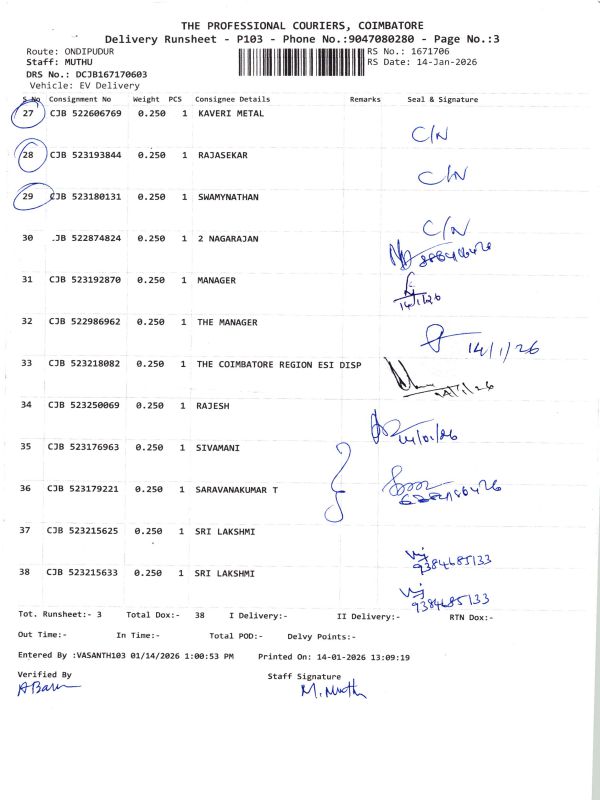 THE PROFESSIONAL COURIERS, COIMBATORE
Delivery Runsheet - P103 - Phone No.:9047080280 - Page No.:3
Route: ONDIPUDUR RS No.: 1671706
Staff: MUTHU RS Date: 14-Jan-2026
DRS No.: DCJB167170603
Vehicle: EV Delivery
S.No Consignment No Weight PCS Consignee Details Remarks Seal & Signature
27 CJB 522606769 0.250 1 KAVERI METAL
C/N
28 CJB 523193844 0.250 1 RAJASEKAR
C/N
29 CJB 523180131 0.250 1 SWAMYNATHAN
C/N
30 .JB 522874824 0.250 1 2 NAGARAJAN
31 CJB 523192870 0.250 1 MANAGER
14/1/26
32 CJB 522986962 0.250 1 THE MANAGER
14/1/26
33 CJB 523218082 0.250 1 THE COIMBATORE REGION ESI DISP
34 CJB 523250069 0.250 1 RAJESH
14/01/26
35 CJB 523176963 0.250 1 SIVAMANI
36 CJB 523179221 0.250 1 SARAVANAKUMAR T
37 CJB 523215625 0.250 1 SRI LAKSHMI
9384685133
38 CJB 523215633 0.250 1 SRI LAKSHMI
9384685133
Tot. Runsheet:- 3 Total Dox:- 38 I Delivery:- II Delivery:- RTN Dox:-
Out Time:- In Time:- Total POD:- Delvy Points:-
Entered By :VASANTH103 01/14/2026 1:00:53 PM Printed On: 14-01-2026 13:09:19
Verified By Staff Signature
M. Muth